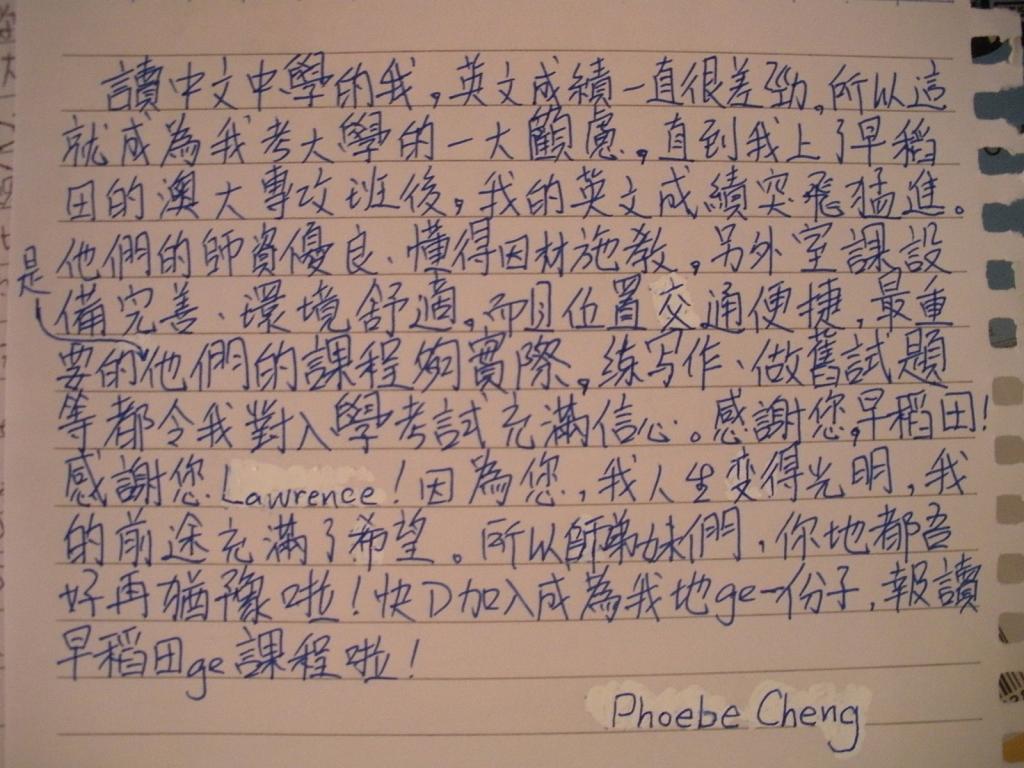 讀中文中學的我，英文成績一直很差勁，所以這
就成為我考大學的一大顧慮，直到我上了早稻
田的澳大專攻班後，我的英文成績突飛猛進。
他們的師資優良、懂得因材施教，另外室課設
備完善、環境舒適，而且位置交通便捷，最重
是
要的他們的課程夠實際，练写作、做舊試題
等都令我對入學考試充滿信心。感謝您，早稻田!
感謝您 Lawrence! 因為您，我人生变得光明，我
的前途充滿了希望。所以師弟妹們，你地都吾
好再猶豫啦! 快D加入成為我地ge一份子，報讀
早稻田ge課程啦!
Phoebe Cheng